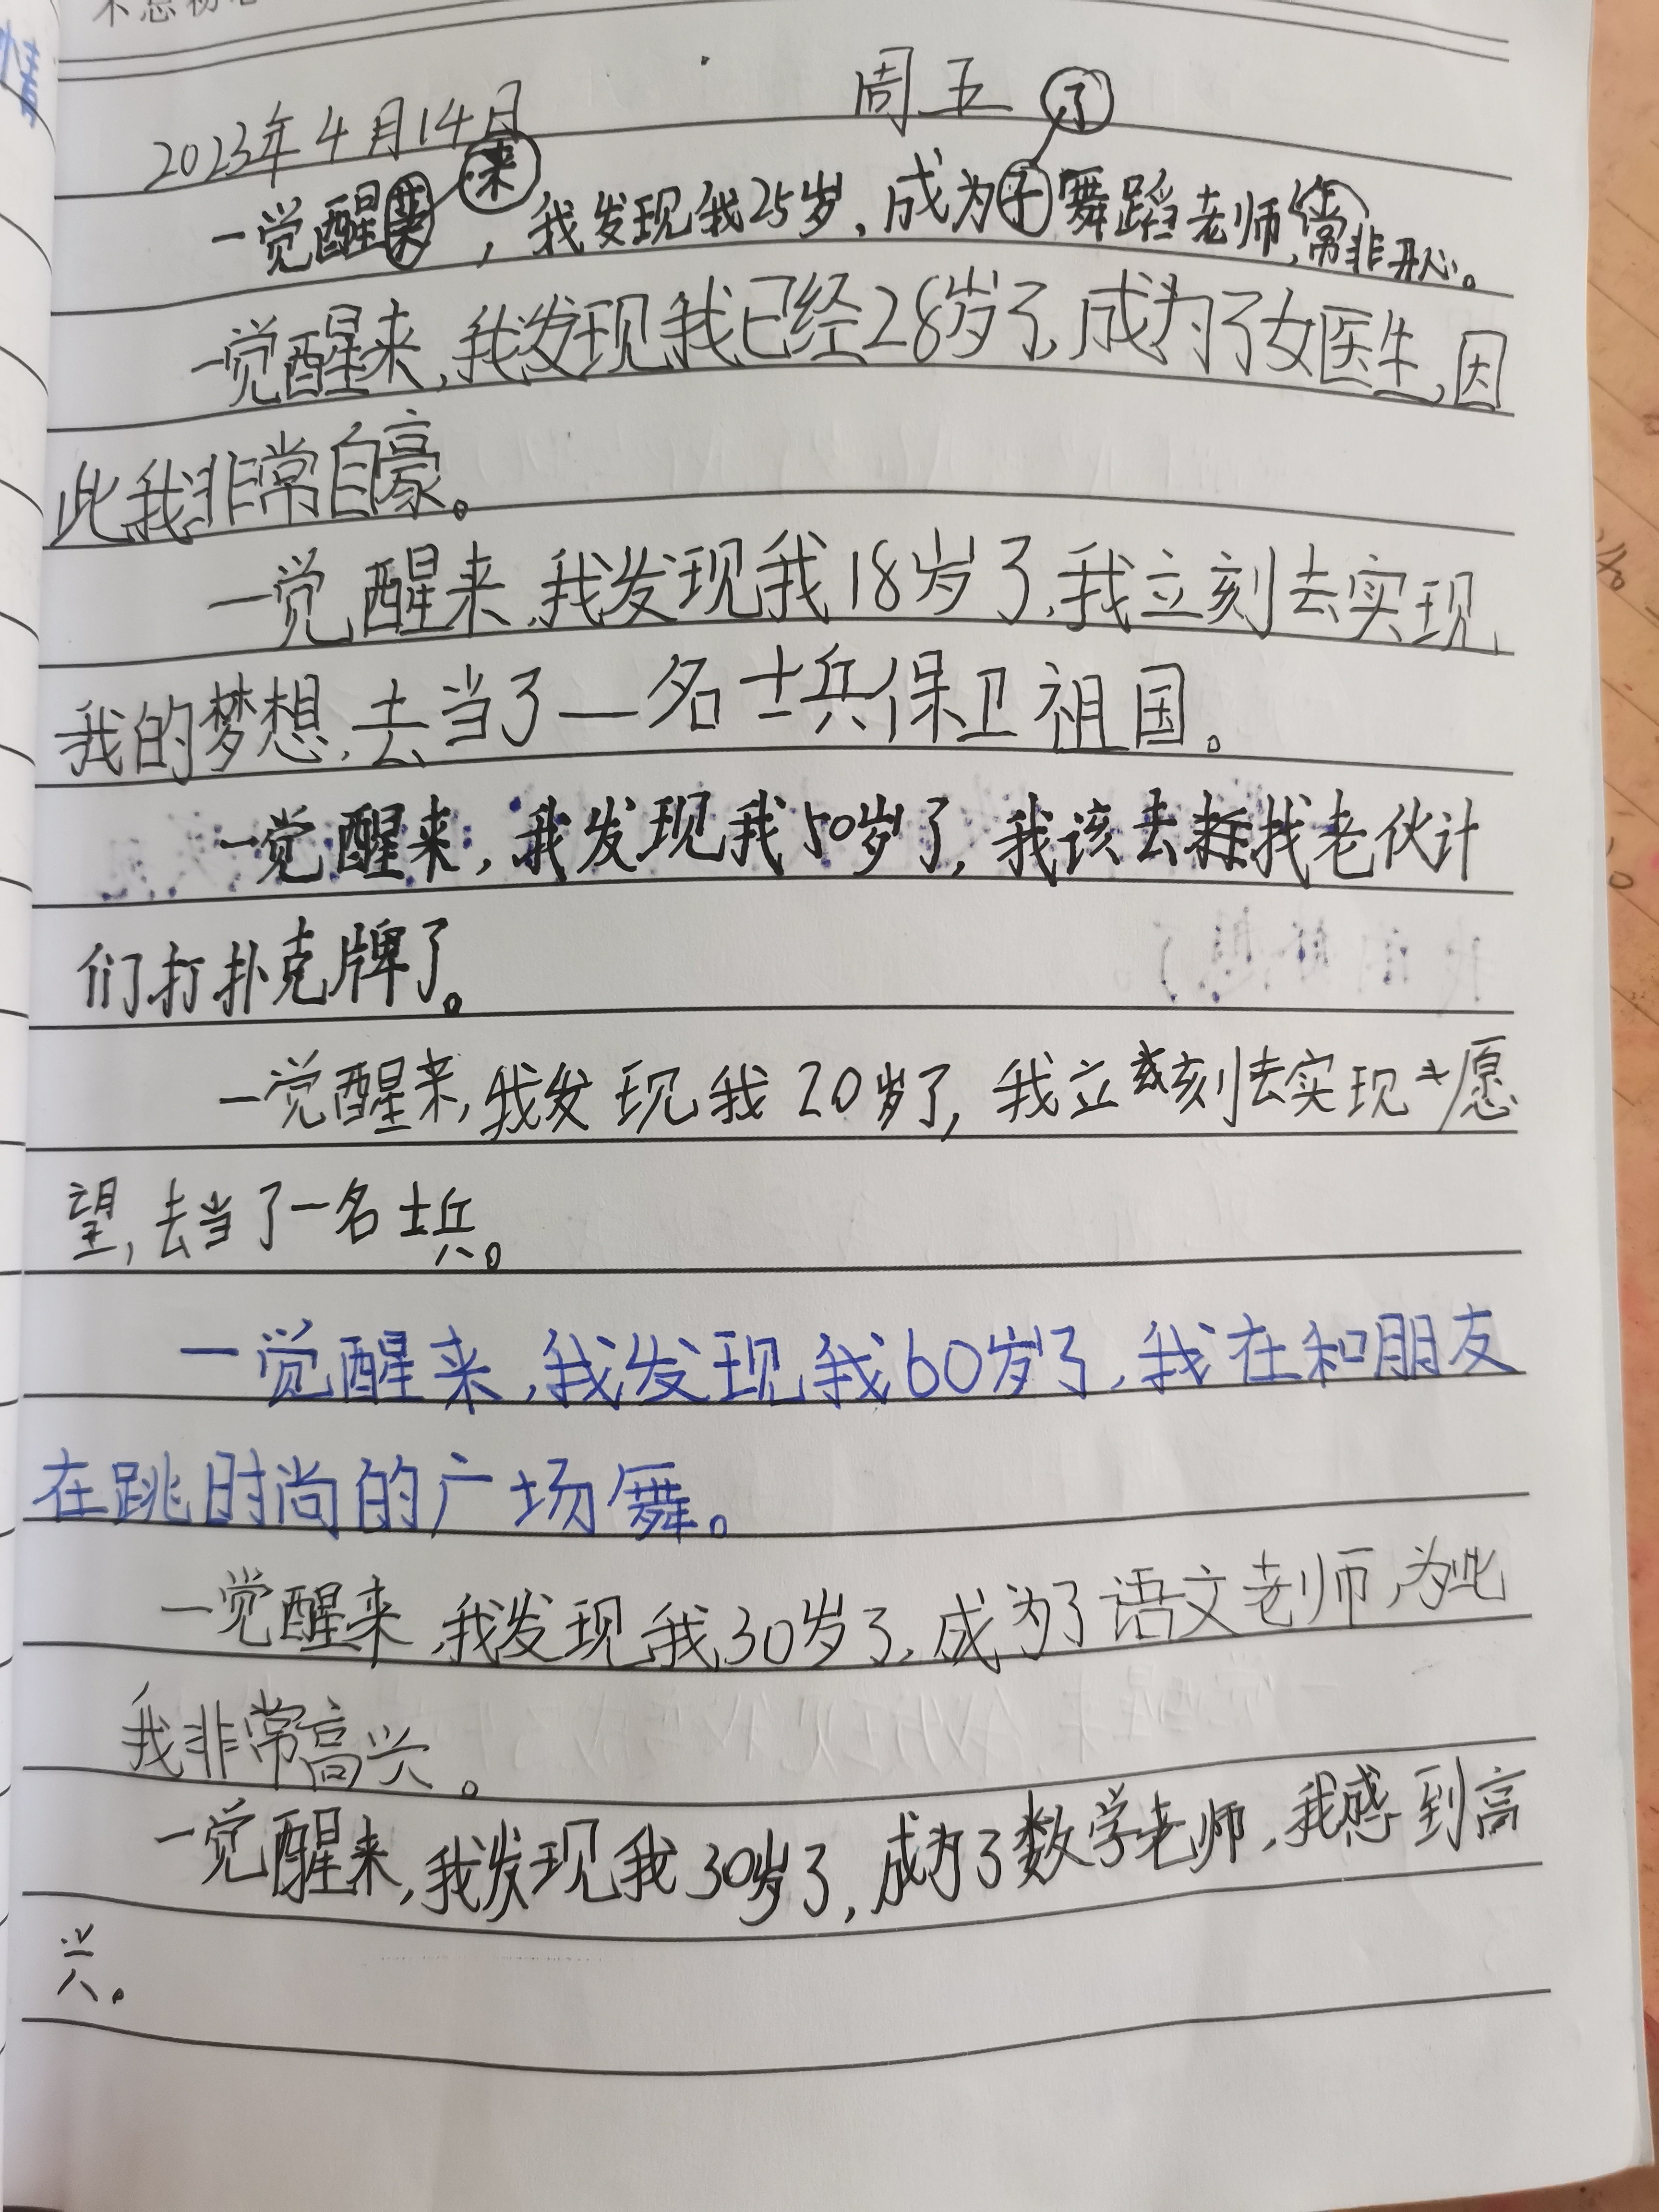 2023年4月14日 周五
一觉醒来，我发现我25岁，成为了舞蹈老师，非常开心。
一觉醒来，我发现我已经28岁了，成为了女医生，因
此我非常自豪。
一觉醒来，我发现我18岁了，我立刻去实现
我的梦想，去当了一名士兵保卫祖国。
一觉醒来，我发现我50岁了，我该去找老伙计
们打扑克牌了。
一觉醒来，我发现我20岁了，我立刻去实现愿
望，去当了一名士兵。
一觉醒来，我发现我60岁了，我在和朋友
在跳时尚的广场舞。
一觉醒来，我发现我30岁了，成为了语文老师，为此
我非常高兴。
一觉醒来，我发现我30岁了，成为了数学老师，我感到高
兴。